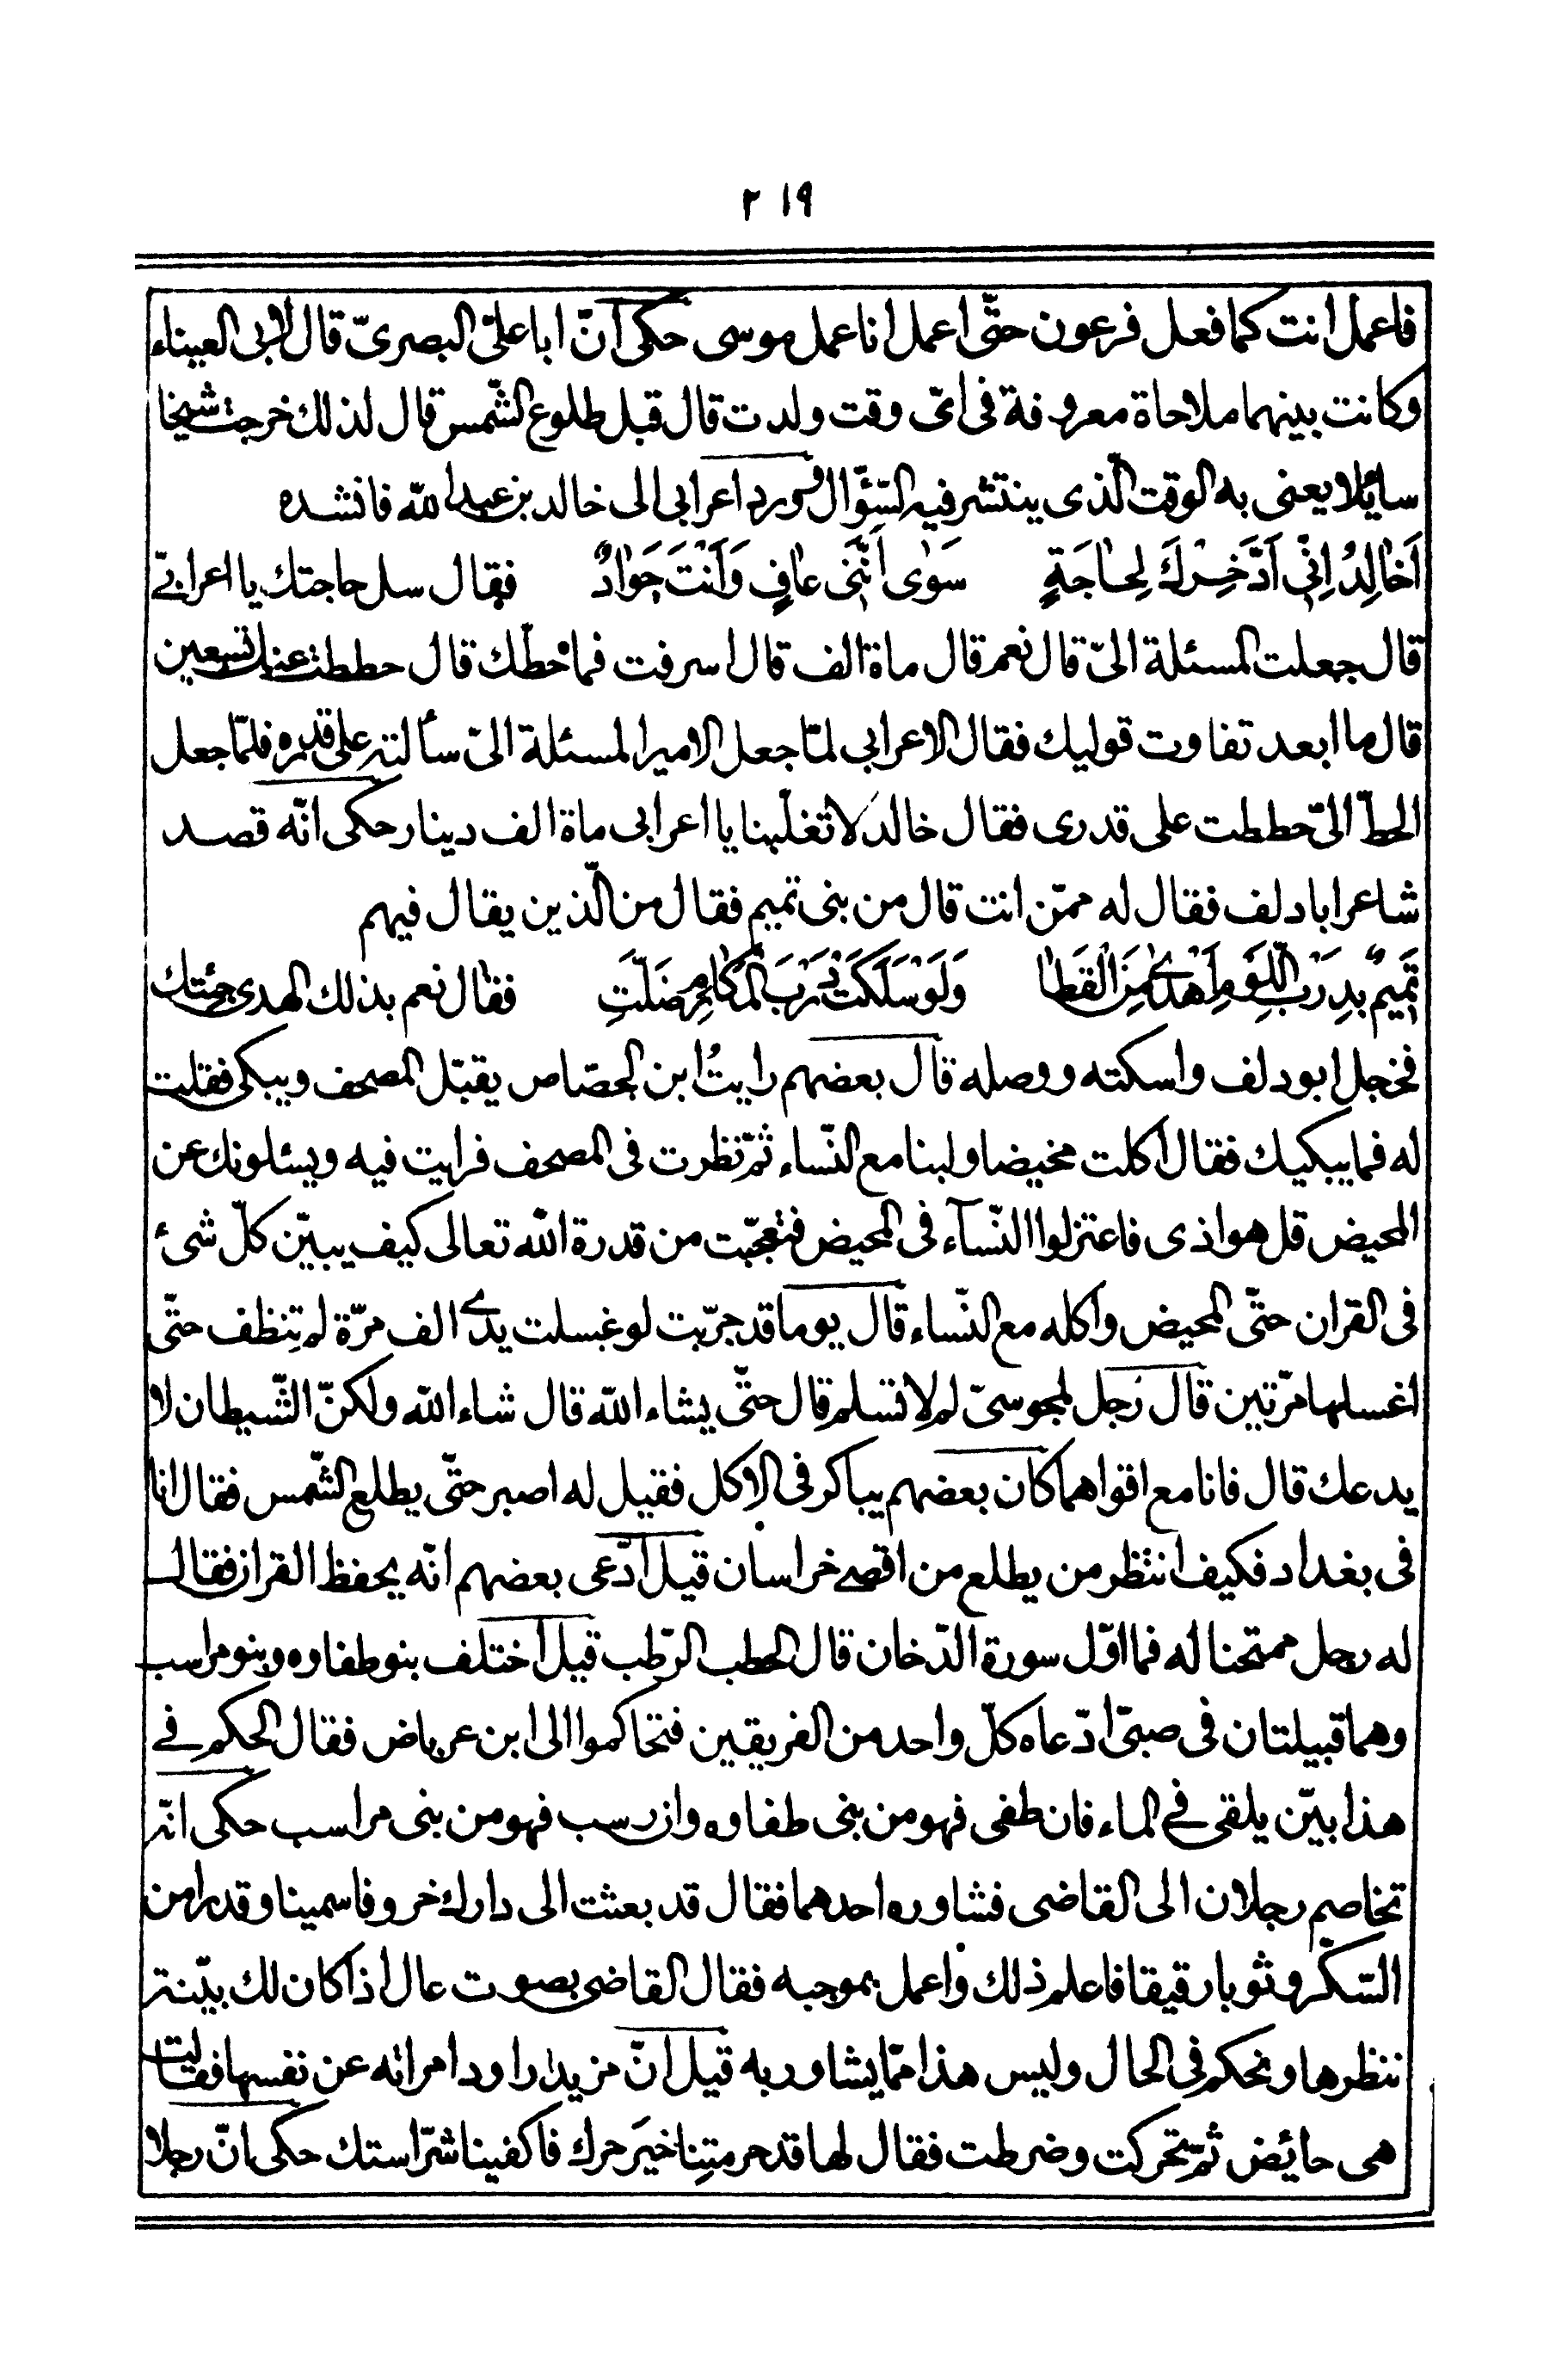 ٢١٩
فاعمل انت كما فعل فرعون حتّى اعمل انا عمل موسى حكى انّ ابا علىّ البصرىّ قال لابى العيناء
وكانت بينهما ملاحاة معروفة فى اىّ وقت ولدت قال قبل طلوع الشّمس قال لذلك خرجت شيخا
سائلا يعنى به الوقت الّذى ينتشر فيه السّؤّال ورد اعرابى الى خالد بن عبد الله فانشده
اَخالِدُ اِنّى اَدَّخِرْكَ لِحاجَةٍ سَوٰى اَنَّنى عافٍ وَاَنْتَ جَوادٌ فقال سل حاجتك يا اعرابىّ
قال جعلت المسئلة الىّ قال نعم قال ماة الف قال اسرفت فما حطّك قال حططت عنك تسعين
قال ما ابعد تفاوت قوليك فقال الاعرابى لمّا جعل الامير المسئلة الىّ سألته على قدره فلمّا جعل
الحطّ الىّ حططت على قدرى فقال خالد لا تغلّبنا يا اعرابى ماة الف دينار حكى انّه قصد
شاعر ابا دلف فقال له ممّن انت قال من بنى تميم فقال من الّذين يقال فيهم
تَميمٌ بِدَرْبِ اللّؤْمِ اَهْدىٰ مِنَ الْقَطا وَلَوْ سَلَكَتْ دَرْبَ الْمَكارِمِ ضَلَّتِ فقال نعم بذلك الهدى جئتك
فخجل ابو دلف واسكته ووصله قال بعضهم رايتُ ابن الجصّاص يقبّل المصحف ويبكى فقلت
له فما يبكيك فقال اكلت مخيضا ولبنا مع النّساء ثمّ نظرت فى المصحف فرايت فيه ويسئلونك عن
المحيض قل هو اذى فاعتزلوا النّسآء فى المحيض فتعجّبت من قدرة الله تعالى كيف يبيّن كلّ شئ
فى القران حتّى المحيض واكله مع النّساء قال يوما قد جرّبت لو غسلت يدى الف مرّة لم تنظف حتّى
اغسلها مرّتين قال رَجل لمجوسىّ لم لا تسلم قال حتّى يشاء الله قال شاء الله ولكنّ الشّيطان لا
يدعك قال فانا مع اقواهما كان بعضهم يباكر فى الاكل فقيل له اصبر حتّى يطلع الشّمس فقال انا
فى بغداد فكيف انتظر من يطلع من اقصى خراسان قيل ادّعى بعضهم انّه يحفظ القران فقال
له رجل ممتحنا له فما اوّل سورة الدّخان قال الحطب الرّطب قيل اختلف بنو طفاوه وبنو راسب
وهما قبيلتان فى صبىّ ادّعاه كلّ واحد من الفريقين فتحاكموا الى ابن عرباض فقال الحكم فى
هذا بيّن يلقى فى الماء فان طفى فهو من بنى طفاوه وان رسب فهو من بنى راسب حكى انّه
تخاصم رجلان الى القاضى فشاوره احدهما فقال قد بعثت الى دارك خروفا سمينا وقدرا من
السّكّر وثوبا رقيقا فاعلم ذلك واعمل بموجبه فقال القاضى بصوت عال اذا كان لك بيّنة
ننظرها ونحكم فى الحال وليس هذا ممّا يشاور به قيل انّ مزيدا راود امراته عن نفسها فقالت
هى حائض ثمّ تحركت وضرطت فقال لها قد حرمتِنا خيَر حرك فاكفينا شرّ استك حكى انّ رجلا